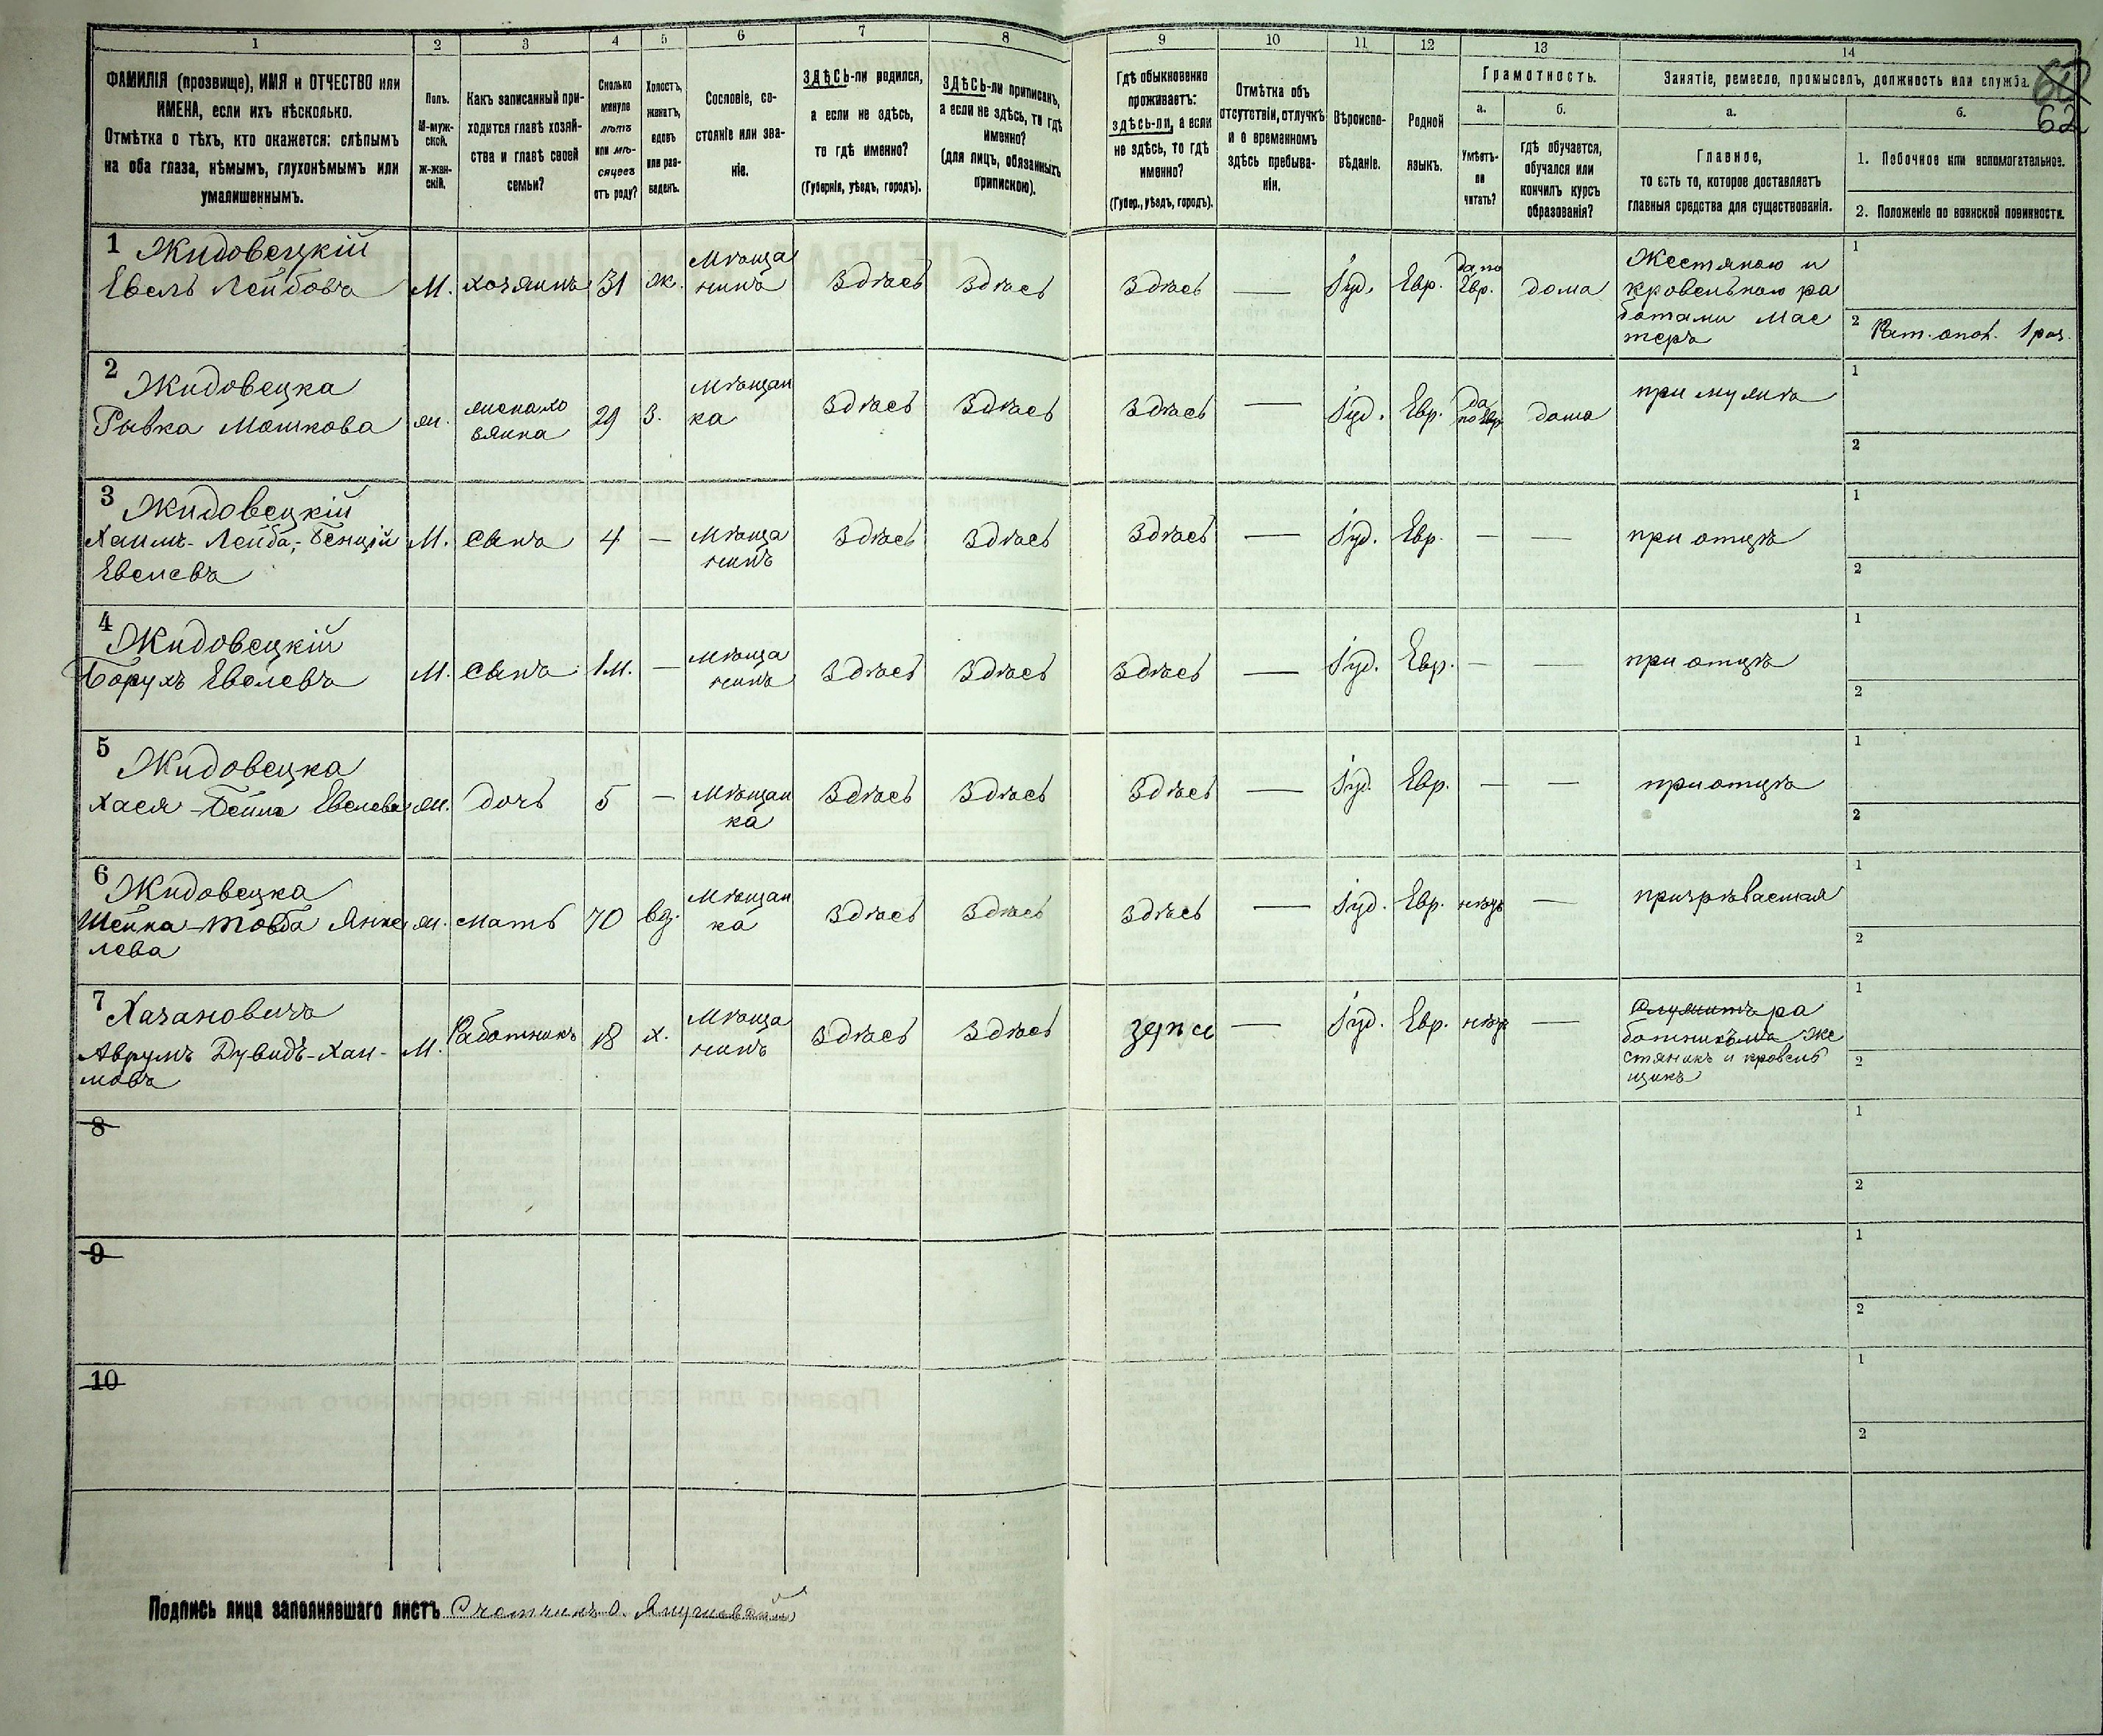 1 2 3 4 5 6 7 8 9 10 11 12 13 14
ФАМИЛІЯ (прозвище), ИМЯ и ОТЧЕСТВО или
ИМЕНА, если ихъ нѣсколько.
Отмѣтка о тѣхъ, кто окажется: слѣпымъ
на оба глаза, нѣмымъ, глухонѣмымъ или
умалишеннымъ.
Полъ.
М-муж-
ской.
Ж-жен-
скій.
Какъ записанный при-
ходится главѣ хозяй-
ства и главѣ своей
семьи?
Сколько
минуло
лѣтъ
или мѣ-
сяцевъ
отъ роду?
Холостъ,
женатъ,
вдовъ
или раз-
веденъ.
Сословіе, со-
стояніе или зва-
ніе.
ЗДѢСЬ-ли родился,
а если не здѣсь,
то гдѣ именно?
(Губернія, уѣздъ, городъ).
ЗДѢСЬ-ли приписанъ,
а если не здѣсь, то гдѣ
именно?
(для лицъ, обязанныхъ
припискою).
Гдѣ обыкновенно
проживаетъ:
здѣсь-ли, а если
не здѣсь, то гдѣ
именно?
(Губер., уѣздъ, городъ).
Отмѣтка объ
отсутствіи, отлучкѣ
и о временномъ
здѣсь пребыва-
ніи.
Вѣроиспо-
вѣданіе.
Родной
языкъ.
Грамотность.
а. б.
Умѣетъ-
ли
читать?
гдѣ обучается,
обучался или
кончилъ курсъ
образованія?
Занятіе, ремесло, промыселъ, должность или служба.
62
а. б.
Главное,
то есть то, которое доставляетъ
главныя средства для существованія.
1. Побочное или вспомогательное.
2. Положеніе по воинской повинности.
1 Жидовецкій
Евель Лейбовъ М. хозяинъ 31 ж. Мѣща
нинъ Здѣсь Здѣсь Здѣсь — Іуд. Евр. да, по
Евр. дома Жестяною и
кровельною ра
ботами мас
теръ
1
2 Рат. опол. 1 раз.
2 Жидовецка
Рывка Мошкова ж. жена хо
зяина 29 З. Мѣщан
ка Здѣсь Здѣсь Здѣсь — Іуд. Евр. да
по Евр. дома при мужѣ
1
2
3 Жидовецкій
Хаимъ-Лейба-Бенцій М. сынъ 4 — Мѣща
нинъ Здѣсь Здѣсь Здѣсь — Іуд. Евр. — — при отцѣ
Евелевъ
1
2
4 Жидовецкій
Борухъ Евелевъ М. сынъ 1 м. — Мѣща
нинъ Здѣсь Здѣсь Здѣсь — Іуд. Евр. — — при отцѣ
1
2
5 Жидовецка
Хася-Бейла Евелева ж. дочь 5 — Мѣщан
ка Здѣсь Здѣсь Здѣсь — Іуд. Евр. — — при отцѣ
1
2
6 Жидовецка
Шейна-Товба Янке ж. мать 70 вд. Мѣщан
ка Здѣсь Здѣсь Здѣсь — Іуд. Евр. нѣтъ — призрѣваемая
лева
1
2
7 Хазановичъ
Аврумъ Дувидъ-Хаи- М. Работникъ 18 х. Мѣща
нинъ Здѣсь Здѣсь — Іуд. Евр. нѣтъ — ра
мовъ
стяникъ и кровель
щикъ
1
2
8
1
2
9
1
2
10
1
2
Подпись лица заполнявшаго листъ Счетчикъ